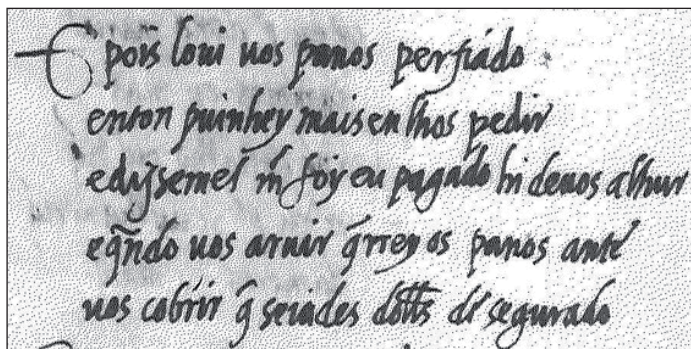 E pois loui uos panos perfiado
enton puinhey mais en lhos pedir
edijsemel m̄ foy eu pagado hi deuos alhur
eq̄ndo uos aruir q̄rrey os panos ante
uos cobrir q̄ seiades dolt̄s de segurado